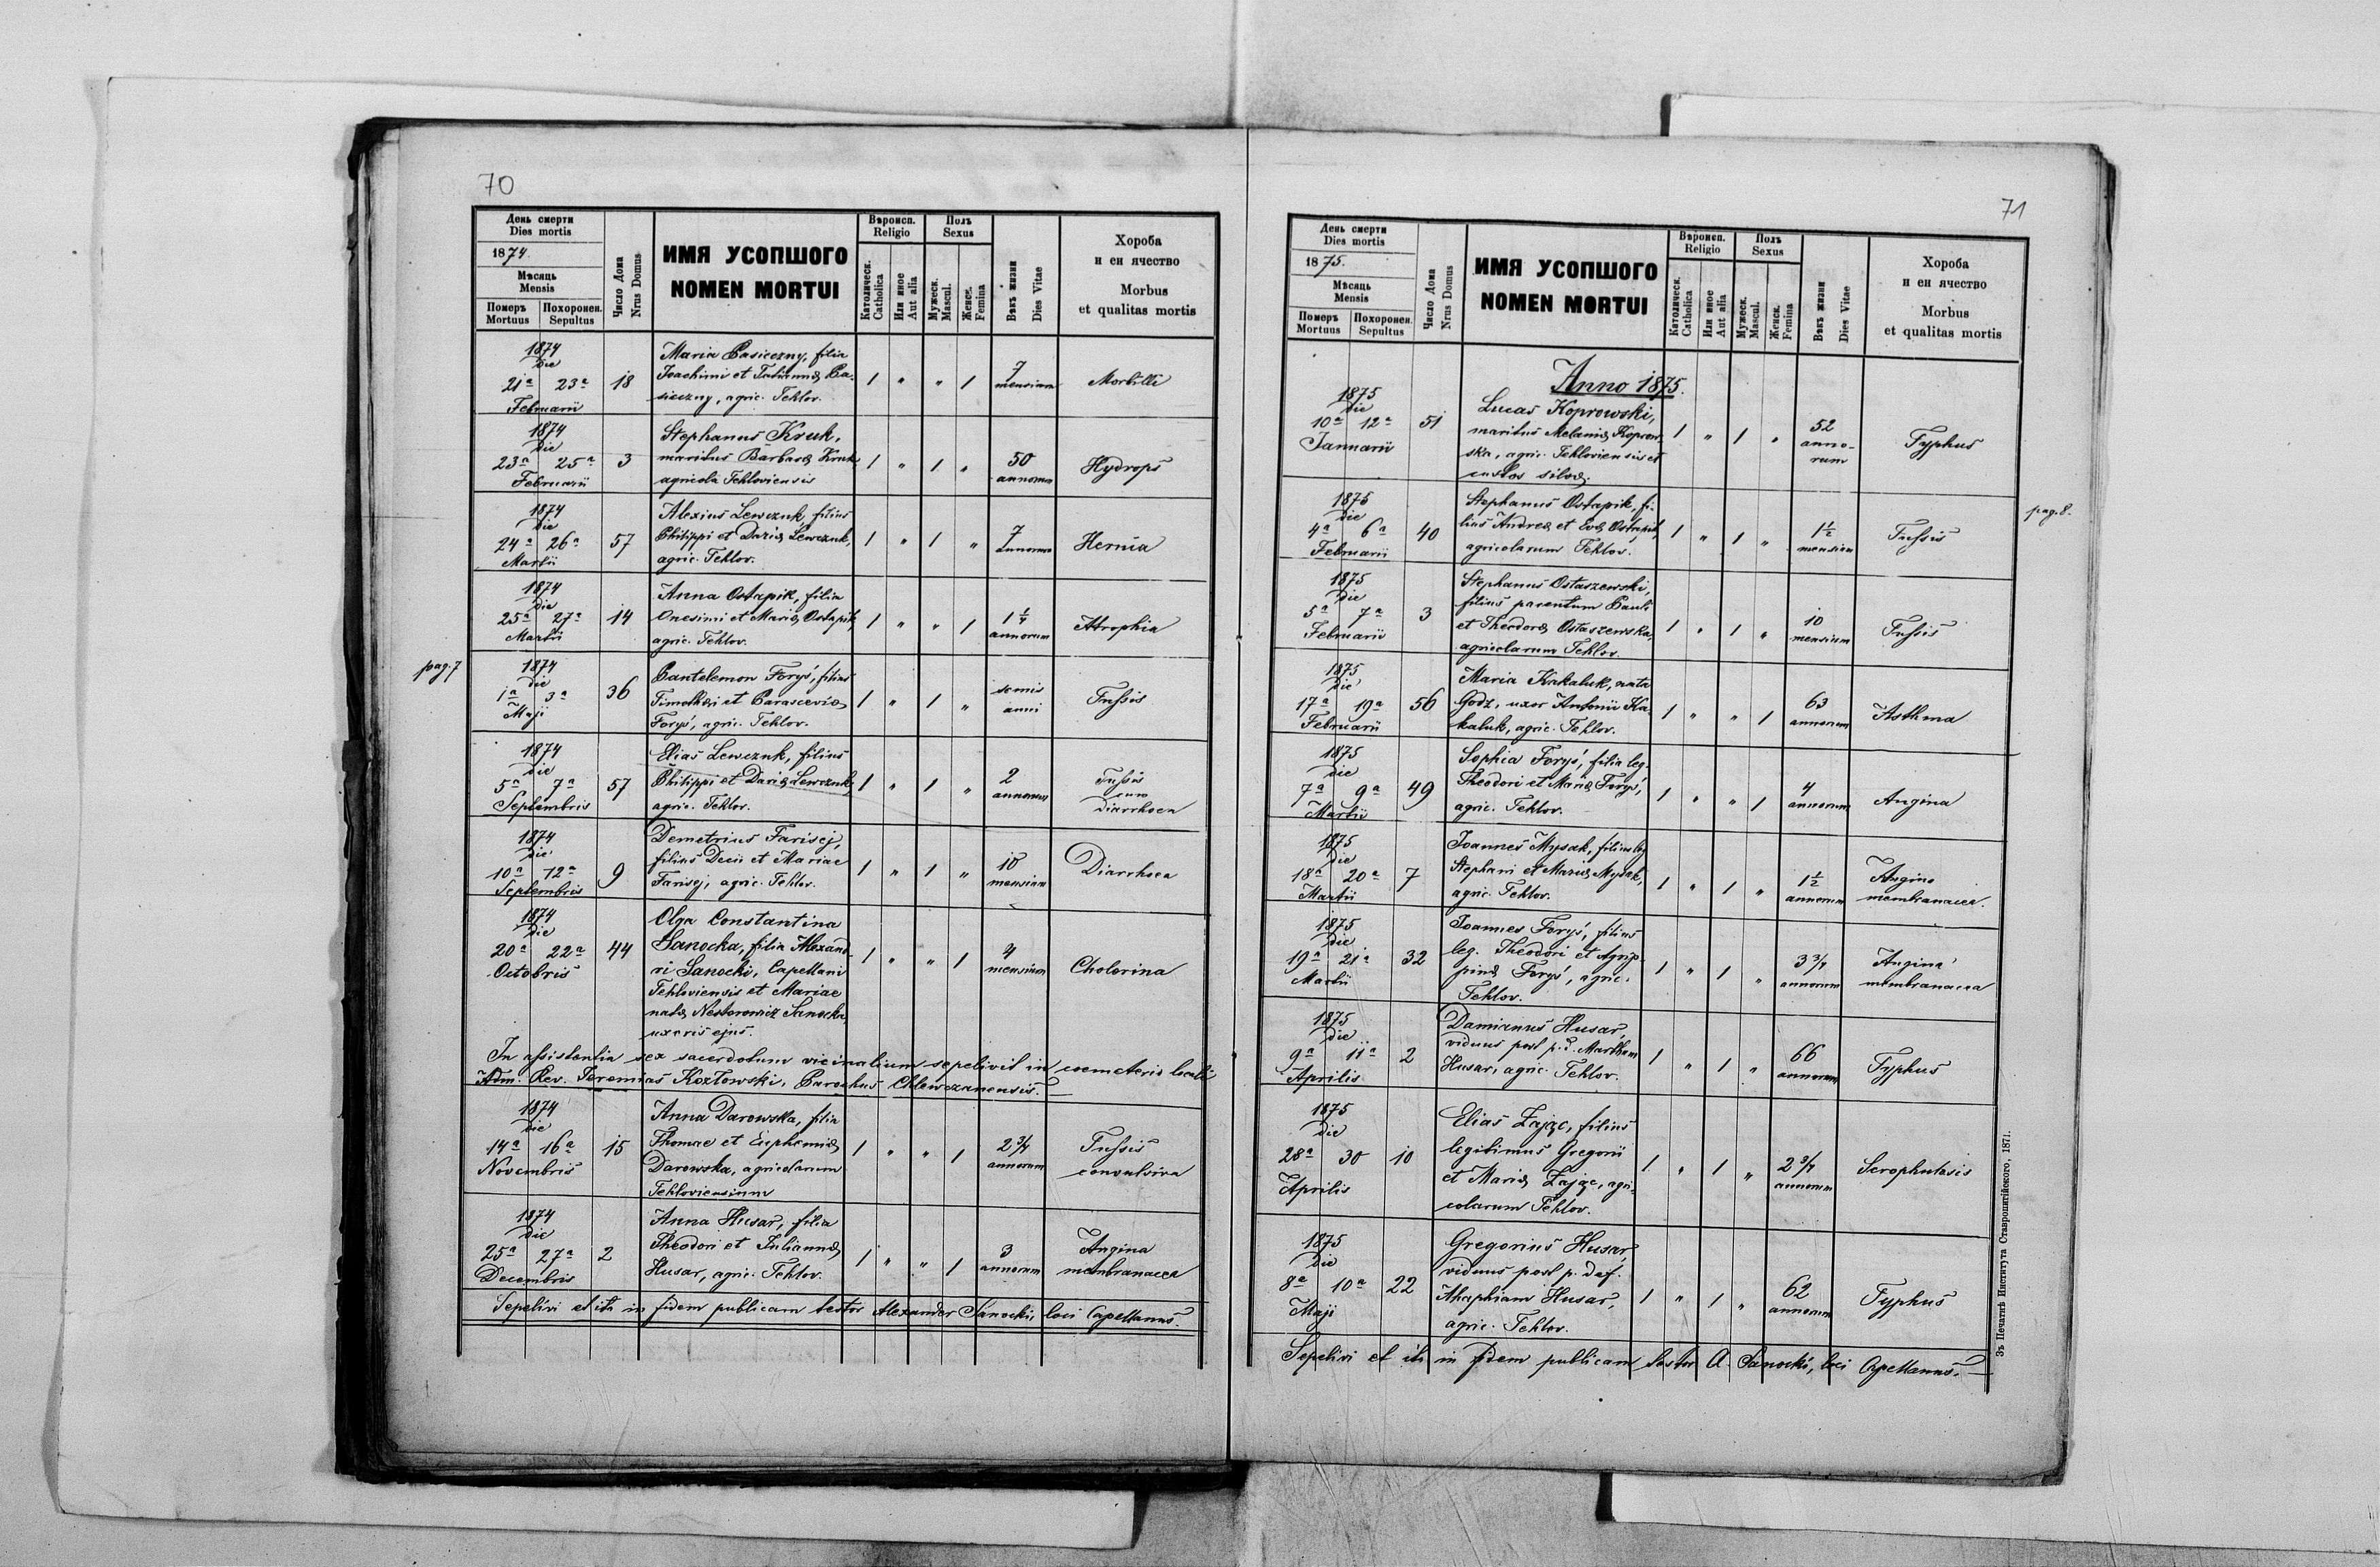 70
День смерти
Dies mortis
1874.
Мѣсяць
Mensis
Померъ
Mortuus
Похоронен.
Sepultus
Число Дома
Nrus Domus
ИМЯ УСОПШОГО
NOMEN MORTUI
Вѣроисп.
Religio
Католическ.
Catholica
Или иное
Aut alia
Полъ
Sexus
Мужеск.
Mascul.
Женск.
Femina
Вѣкъ жизни
Dies Vitae
Хороба
и еи ячество
Morbus
et qualitas mortis
1874
Die
21ª 23ª 18
Februarii
Maria Pasieczny, filia
Joachimi et Pa-
sieczny, agric. Tehlov.
1 " " 1
7
mensium
Morbilli
1874
Die
23ª 25ª 3
Februarii
Stephanus Kruk,
maritus Barbaræ Kruk
agricola Tehloviensis
1 " 1 "
50
annorum
Hydrops
1874
Die
24ª 26ª 57
Martii
Alexius Lewczuk, filius
Philippi et Dariæ Lewczuk,
agric. Tehlov.
1 " 1 "
7
annorum
Hernia
1874
Die
25ª 27ª 14
Martii
Anna Ostapik, filia
Onesimi et Mariæ Ostapik,
agric. Tehlov.
1 " " 1
annorum
Atrophia
pag. 7
1874
die
1ª 3ª 36
Maji
Pantelemon Foryś, filius
Timothæi et Parasceviæ
Foryś, agric. Tehlov.
1 " 1 "
semis
anni
Tussis
1874
die
5ª 7ª 57
Septembris
Elias Lewczuk, filius
Philippi et Dariæ Lewczuk,
agric. Tehlov.
1 " 1 "
2
annorum
Tussis
cum
diarrhoea
1874
die
10ª 12ª 9
Septembris
Demetrius Farisej,
filius Decii et Mariae
Farisej, agric. Tehlov.
1 " 1 "
10
mensium
Diarrhoea
1874
Die
20ª 22ª 44
Octobris
Olga Constantina
Sanocka, filia Alexand-
ri Sanocki, Capellani
Tehloviensis et Mariae
natæ Nestorowicz Sanocka,
uxoris ejus.
1 " " 1
4
mensium
Cholerina
In assistentia sex sacerdotum vicinalium sepelivit in coemeterio locali
Adm. Rev. Jeremias Kozłowski, Parochus Chlewczanensis.
1874
die
14ª 16ª 15
Novembris
Anna Darowska, filia
Thomae et Euphemiæ
Darowska, agricolarum
Tehloviensium
1 " " 1
2 3/4
annorum
Tussis
convulsiva
1874
die
25ª 27ª 2
Decembris
Anna Husar, filia
Theodori et Juliannæ
Husar, agric. Tehlov.
1 " " 1
3
annorum
Angina
membranacea
Sepelivi et iti in fidem publicam testor Alexander Sanocki, loci Capellanus.
71
День смерти
Dies mortis
1875.
Мѣсяць
Mensis
Померъ
Mortuus
Похоронен.
Sepultus
Число Дома
Nrus Domus
ИМЯ УСОПШОГО
NOMEN MORTUI
Вѣроисп.
Religio
Католическ.
Catholica
Или иное
Aut alia
Полъ
Sexus
Мужеск.
Mascul.
Женск.
Femina
Вѣкъ жизни
Dies Vitae
Хороба
и еи ячество
Morbus
et qualitas mortis
Anno 1875.
1875
die
10ª 12ª 51
Januarii
Lucas Koprowski,
maritus Melaniæ Koprow-
ska, agric. Tehloviensis et
custos silvæ.
1 " 1 "
52
anno-
rum
Typhus
pag. 8.
1875
die
4ª 6ª 40
Februarii
Stephanus Ostapik, fi-
lius Andreæ et Evæ Ostapik,
agricolarum Tehlov.
1 " 1 "
1 1/2
mensium
Tussis
1875
Die
5ª 7ª 3
Februarii
Stephanus Ostaszewski,
filius parentum Pauli
et Theodoræ Ostaszewska,
agricolarum Tehlov.
1 " 1 "
10
mensium
Tussis
1875
Die
17ª 19ª 56
Februarii
Maria Kakaluk, nata
Godz, uxor Antonii Ka-
kaluk, agric. Tehlov.
1 " " 1
63
annorum
Asthma
1875
Die
7ª 9ª 49
Martii
Sophia Foryś, filia leg.
Theodori et Mariæ Foryś,
agric. Tehlov.
1 " " 1
4
annorum
Angina
1875
Die
18ª 20ª 7
Martii
Joannes Mysak, filius leg.
Stephani et Mariæ Mysak,
agric. Tehlov.
1 " 1 "
1 1/2
annorum
Angina
membranacea.
1875
Die
19ª 21ª 32
Martii
Joannes Foryś, filius
leg. Theodori et Agrip-
pinæ Foryś, agric.
Tehlov.
1 " 1 "
3 3/4
annorum
Angina
membranacea
1875
Die
9ª 11ª 2
Aprilis
Damianus Husar,
viduus post p. d. Martham
Husar, agric. Tehlov.
1 " 1 "
66
annorum
Typhus
1875
Die
28ª 30 10
Aprilis
Elias Zając, filius
legitimus Gregorii
et Mariæ Zając, agri-
colarum Tehlov.
1 " 1 "
2 3/4
annorum
Scrophulosis
1875
Die
8ª 10ª 22
Maji
Gregorius Husar,
viduus post p. def.
Ahaphiam Husar,
agric. Tehlov.
1 " 1 "
62
annorum
Typhus
Sepelivi et iti in fidem publicam testor A. Sanocki, loci Capellanus.
Зъ Печатнѣ Института Ставропигійского, 1871.